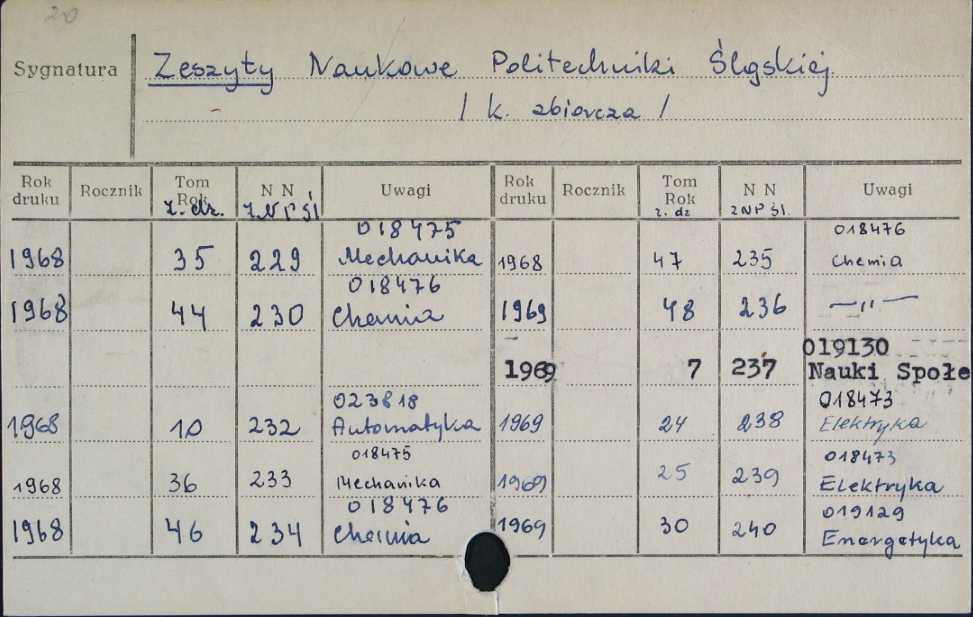 20
Sygnatura Zeszyty Naukowe Politechniki Śląskiej
/ k. zbiorcza /
Rok druku Rocznik Tom Rok z. dz. N N Z.N P Śl Uwagi
018475
1968 35 229 Mechanika
018476
1968 44 230 Chemia
023818
1968 10 232 Automatyka
018475
1968 36 233 Mechanika
018476
1968 46 234 Chemia
Rok druku Rocznik Tom Rok z. dz N N ZNP Śl. Uwagi
018476
1968 47 235 Chemia
1969 48 236 —"—
019130
1969 7 237 Nauki Społe
018473
1969 24 238 Elektryka
018473
1969 25 239 Elektryka
019129
1969 30 240 Energetyka